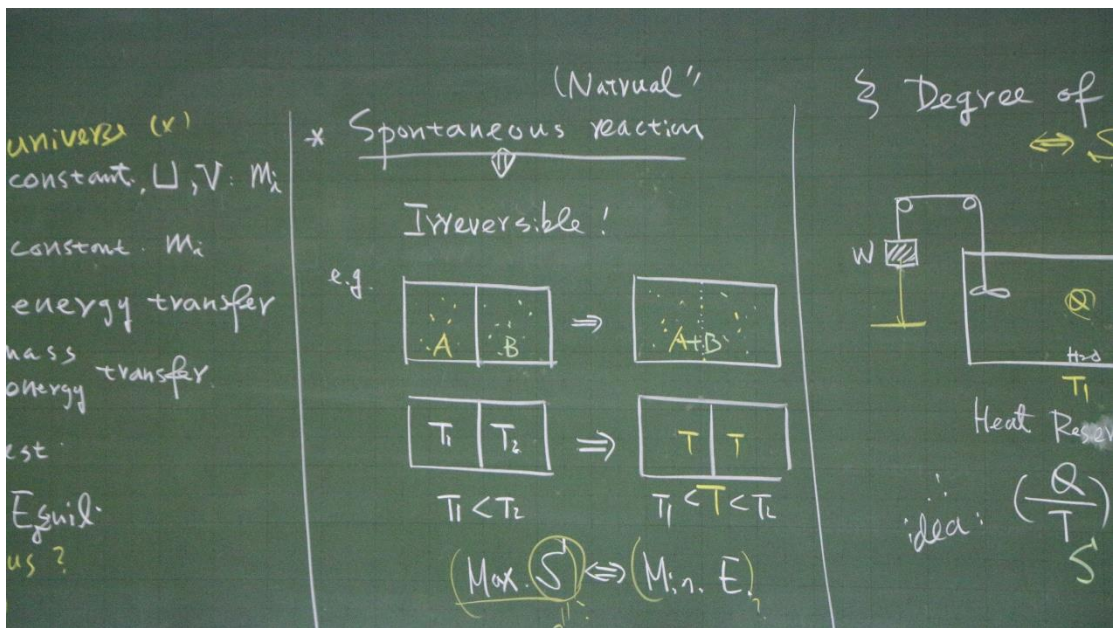 universe (x)
constant. U, V. mi
constant. mi
energy transfer
mass
energy transfer.
Equil.
us ?
(Natrual"
* Spontaneous reaction
⇓
Irreversible!
e.g.
A B ⇒ A+B
T1 T2 ⇒ T T
T1 < T2 T1 < T < T2
(Max. S) ⇔ (Min. E.)?
Degree of
⇔ S
W
Q
H2O
T1
Heat Reser
∴
idea: (Q/T)
S